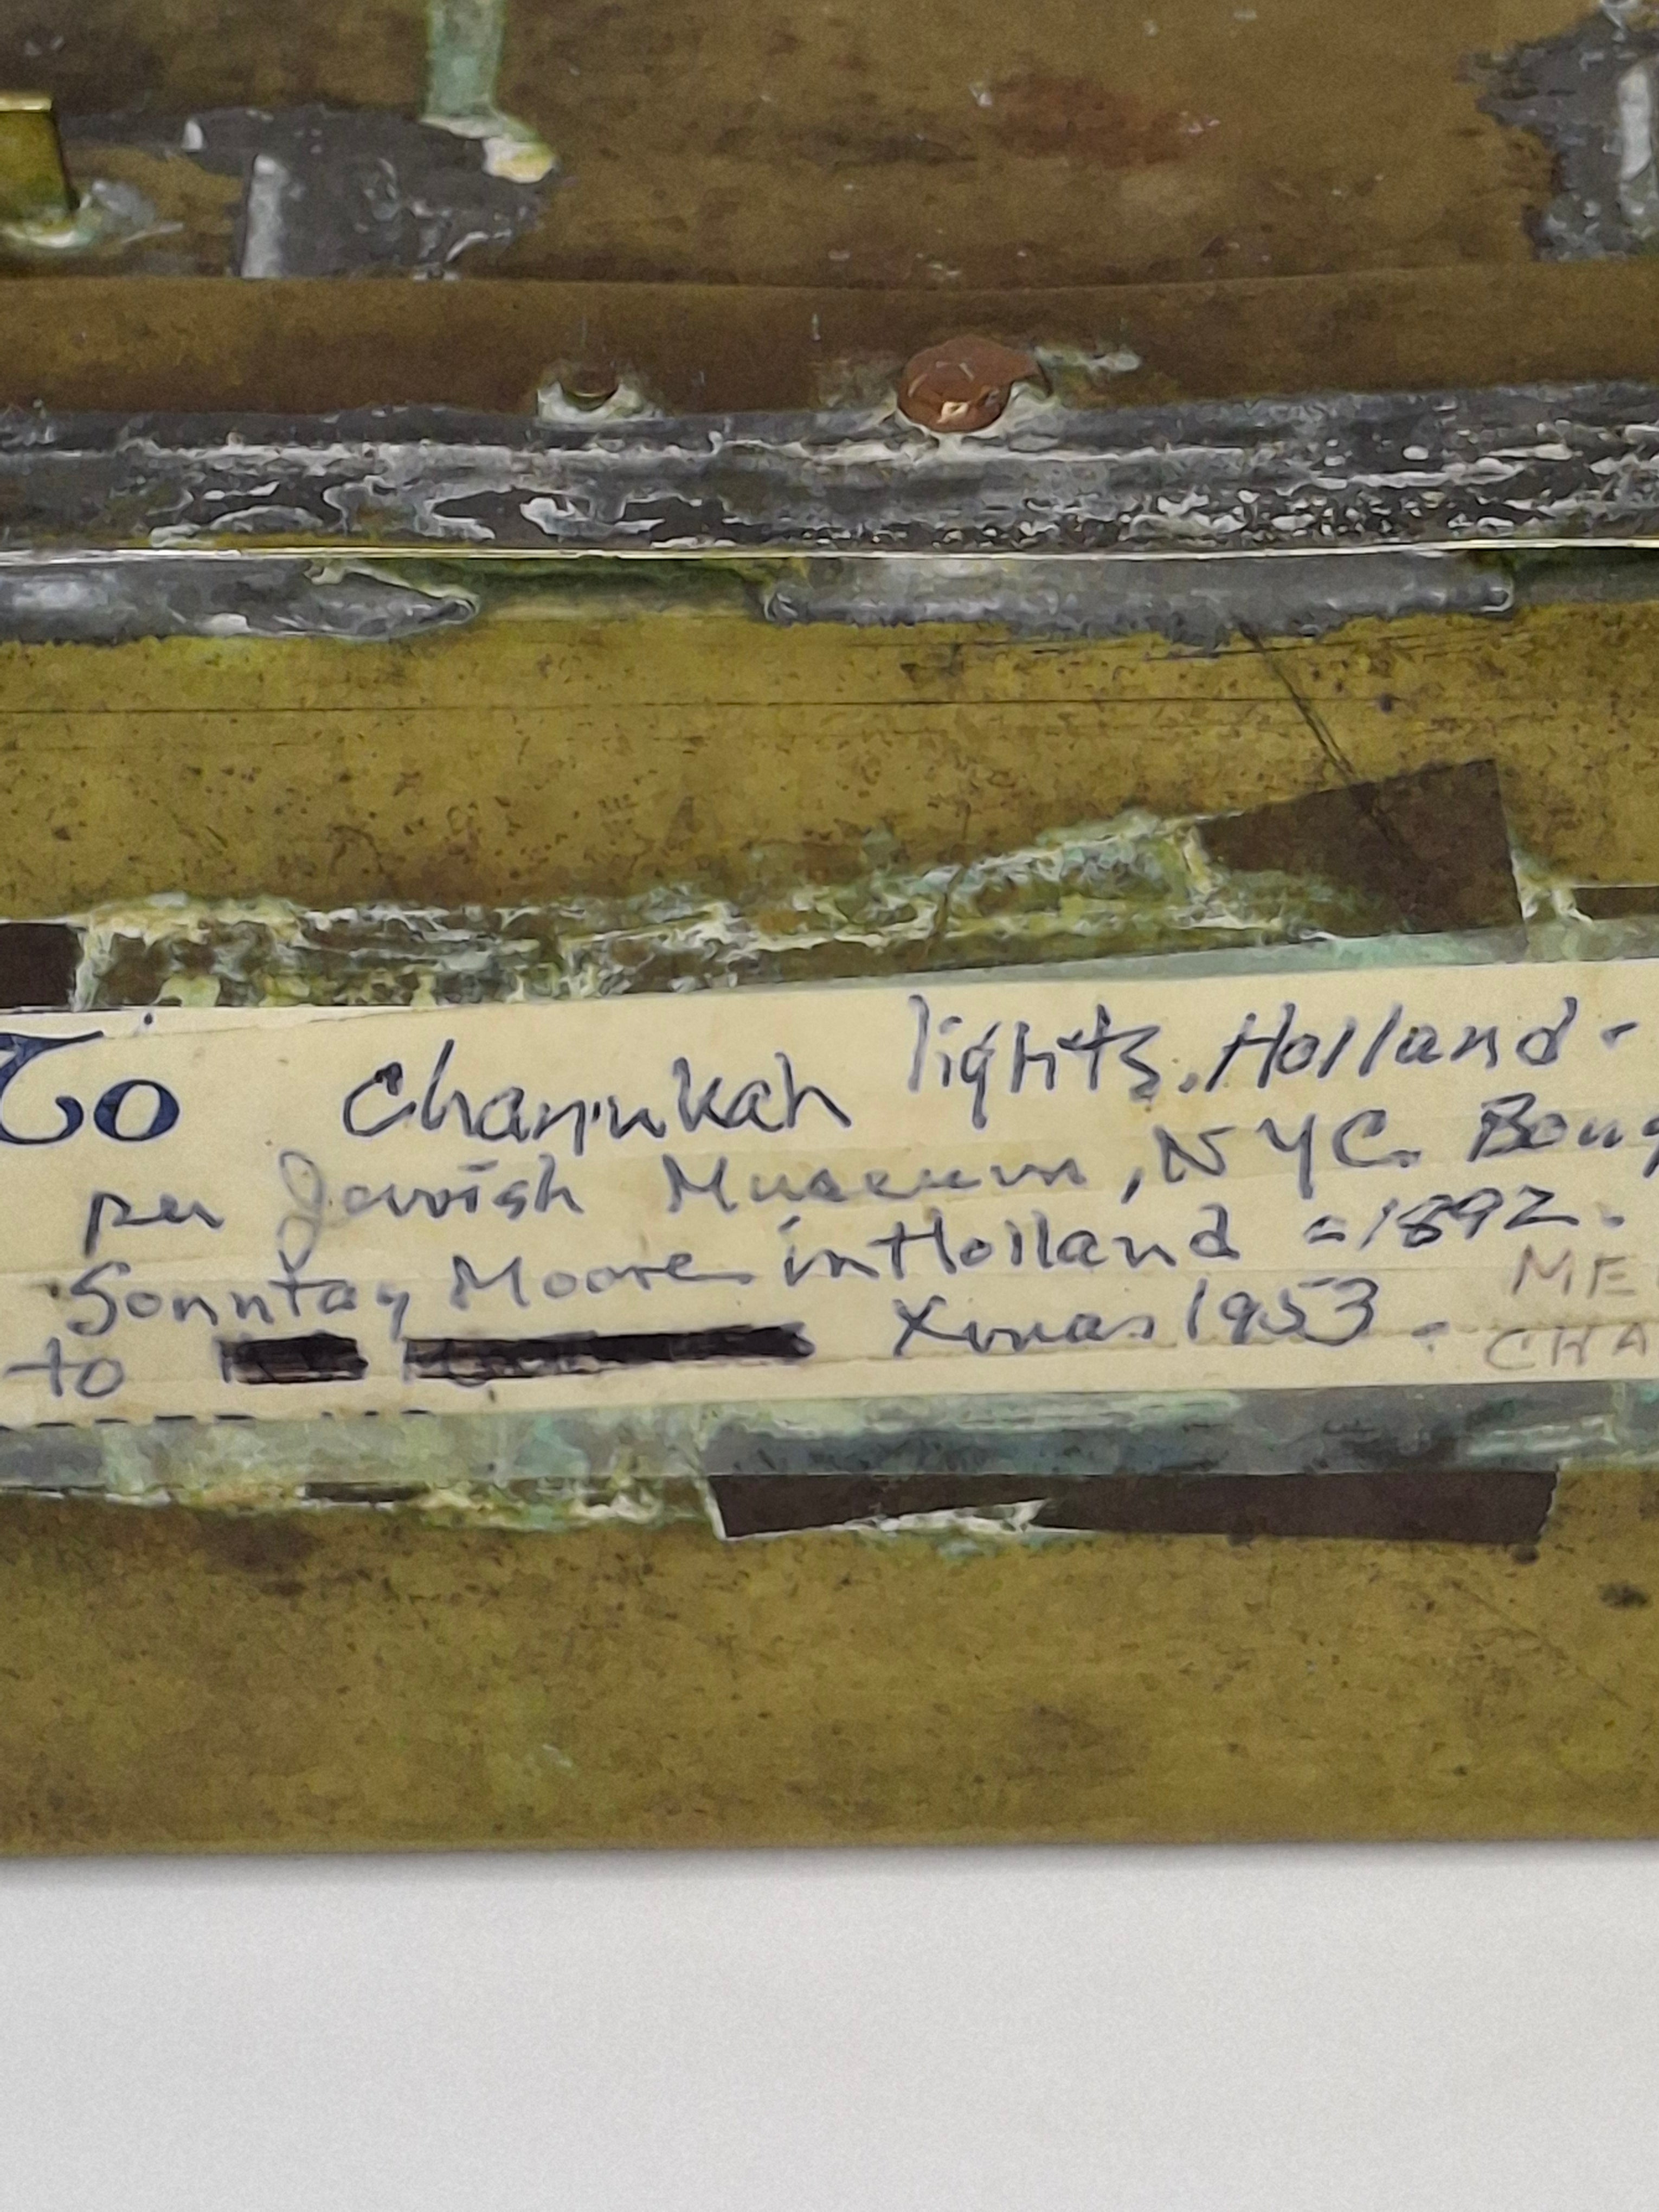 To Chanukah lights, Holland-
per Jewish Museum, NYC. Boug
Sonntag Moore in Holland =1892.
to Xmas 1953.
ME
CHA